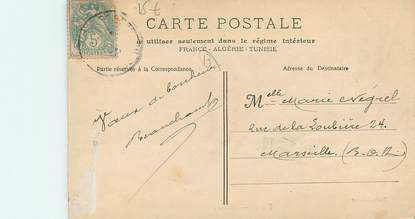 15 €
CARTE POSTALE
utiliser seulement dans le régime intérieur
FRANCE - ALGÉRIE - TUNISIE
Partie réservée à la Correspondance
Adresse du Destinataire
5
Melle Marie Négrel
rue de la Loubière 24.
Marseille. (B. d. Rh.)
de bonheur
Beauchamp